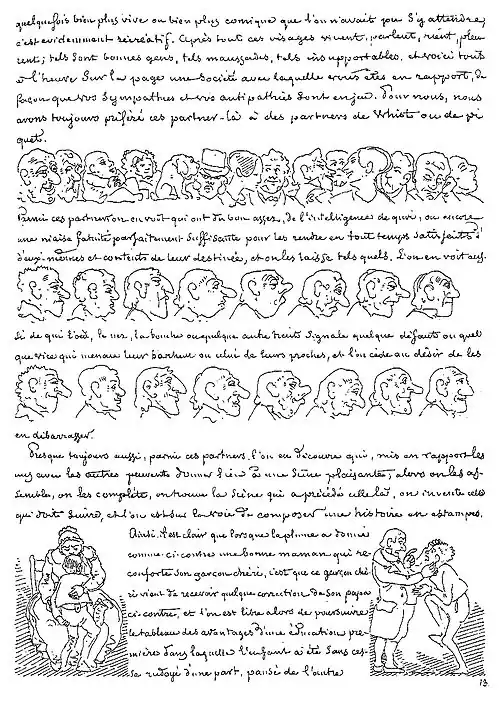 quelquefois bien plus vive ou bien plus comique que l'on n'avait pu s'y attendre,
c'est évidemment récréatif. Après tout ces visages vivent, parlent, rient, pleu-
rent; tels sont bonnes gens, tels maussades, tels insupportables, et voici tout
à l'heure sur la page une société avec laquelle vous êtes en rapport, de
façon que vos sympathies et vos antipathies sont en jeu. Pour nous, nous
avons toujours préféré ces partner-là à des partners de Whist ou de pi-
quet.
Parmi ces partners on en voit qui ont du bon assez, de l'intelligence de quoi, ou encore
une niaise fatuité parfaitement suffisante pour les rendre en tout temps satisfaits d'
eux-mêmes et contents de leur destinée, et on les laisse tels quels. L'on en voit aus-
si de qui l'œil, le nez, la bouche ou quelque autre trait signale quelque défaut ou quel
que vice qui menace leur bonheur ou celui de leurs proches, et l'on cède au désir de les
en débarrasser.
Presque toujours aussi, parmi ces partners l'on en découvre qui, mis en rapport les
uns avec les autres peuvent donner lieu à une scène plaisante, alors on les as-
semble, on les complète, on trouve la scène qui a précédé celle là, on invente celle
qui doit suivre, et l'on est sur la voie de composer une histoire en estampes.
Ainsi, il est clair que lorsque la plume a donné
comme ci-contre une bonne maman qui ré-
conforte son garçon chéri, c'est que ce garçon ché
ri vient de recevoir quelque correction de son papa
ci-contre, et l'on est libre alors de poursuivre
le tableau des avantages d'une éducation pre-
mière dans laquelle l'enfant a été sans ces-
se rudoyé d'une part, pansé de l'autre
13.